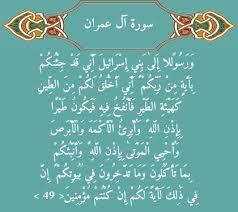 سورة آل عمران
وَرَسُولًا إِلَىٰ بَنِي إِسْرَائِيلَ أَنِّي قَدْ جِئْتُكُمْ
بِآيَةٍ مِنْ رَبِّكُمْ أَنِّي أَخْلُقُ لَكُمْ مِنَ الطِّينِ
كَهَيْئَةِ الطَّيْرِ فَأَنْفُخُ فِيهِ فَيَكُونُ طَيْرًا
بِإِذْنِ اللَّهِ وَأُبْرِئُ الْأَكْمَهَ وَالْأَبْرَصَ
وَأُحْيِي الْمَوْتَىٰ بِإِذْنِ اللَّهِ وَأُنَبِّئُكُمْ
بِمَا تَأْكُلُونَ وَمَا تَدَّخِرُونَ فِي بُيُوتِكُمْ إِنَّ
فِي ذَٰلِكَ لَآيَةً لَكُمْ إِنْ كُنْتُمْ مُؤْمِنِينَ< 49 >